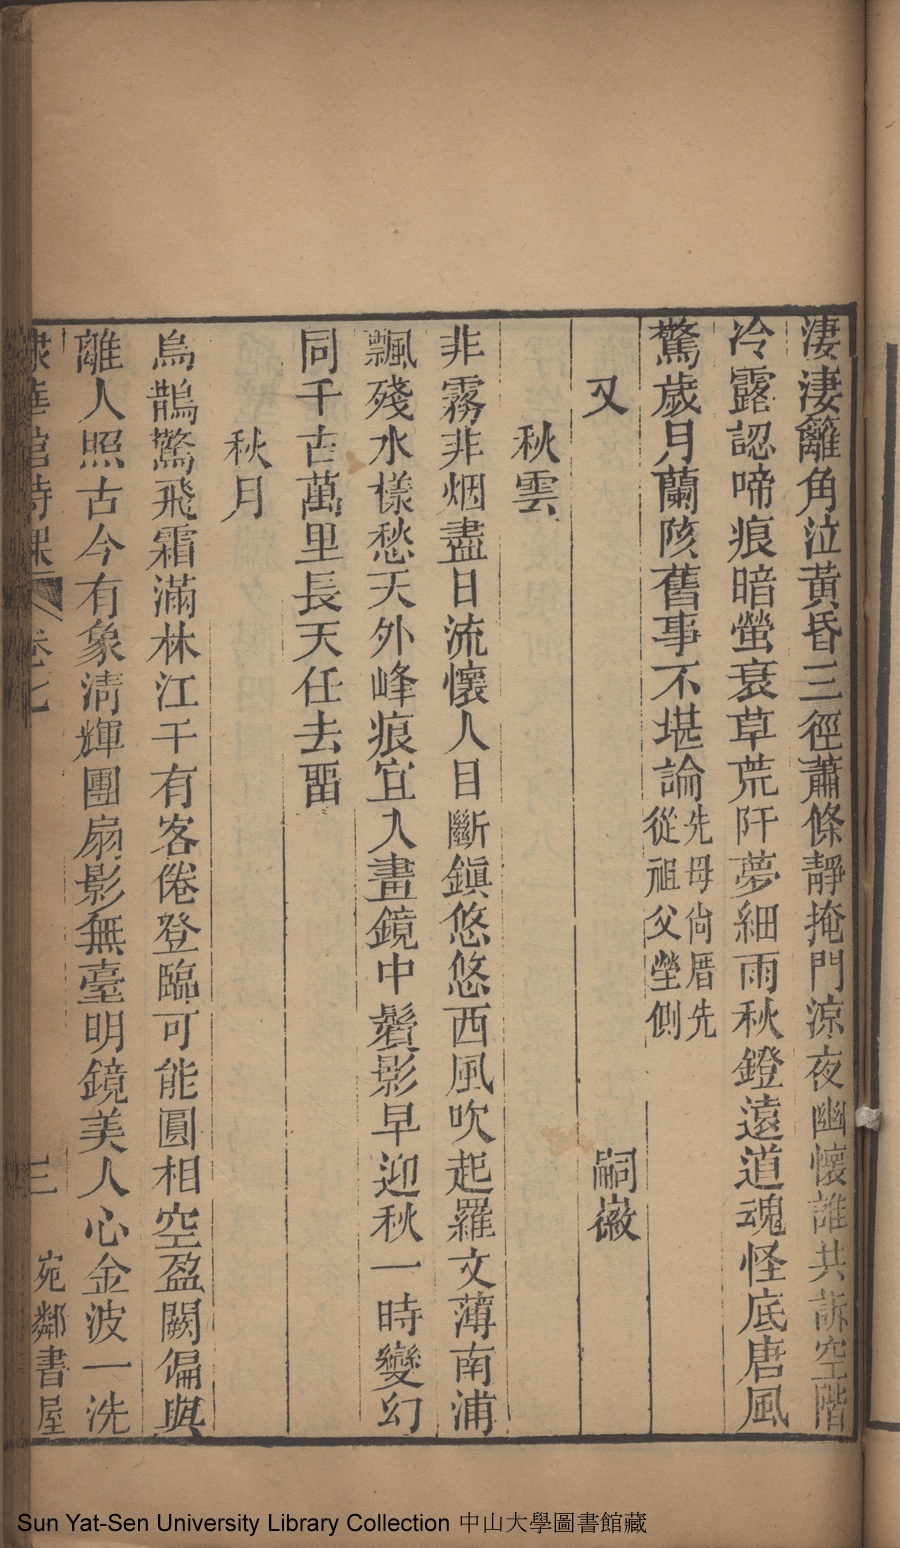 淒淒籬角泣黃昏三徑蕭條靜掩門涼夜幽懷誰共訴空階
冷露認啼痕暗螢衰草荒阡夢細雨秋鐙遠道魂怪底唐風
驚歲月蘭陔舊事不堪論先母尙厝先
從祖父塋側
又
嗣徽
秋雲
非霧非烟盡日流懷人目斷鎭悠悠西風吹起羅文薄南浦
飄殘水樣愁天外峰痕宜入畫鏡中鬢影早迎秋一時變幻
同千古萬里長天任去畱
秋月
烏鵲驚飛霜滿林江干有客倦登臨可能圓相空盈闕偏與
離人照古今有象淸輝團扇影無臺明鏡美人心金波一洗
華館詩課
卷七
三
宛鄰書屋
Sun Yat-Sen University Library Collection 中山大學圖書館藏